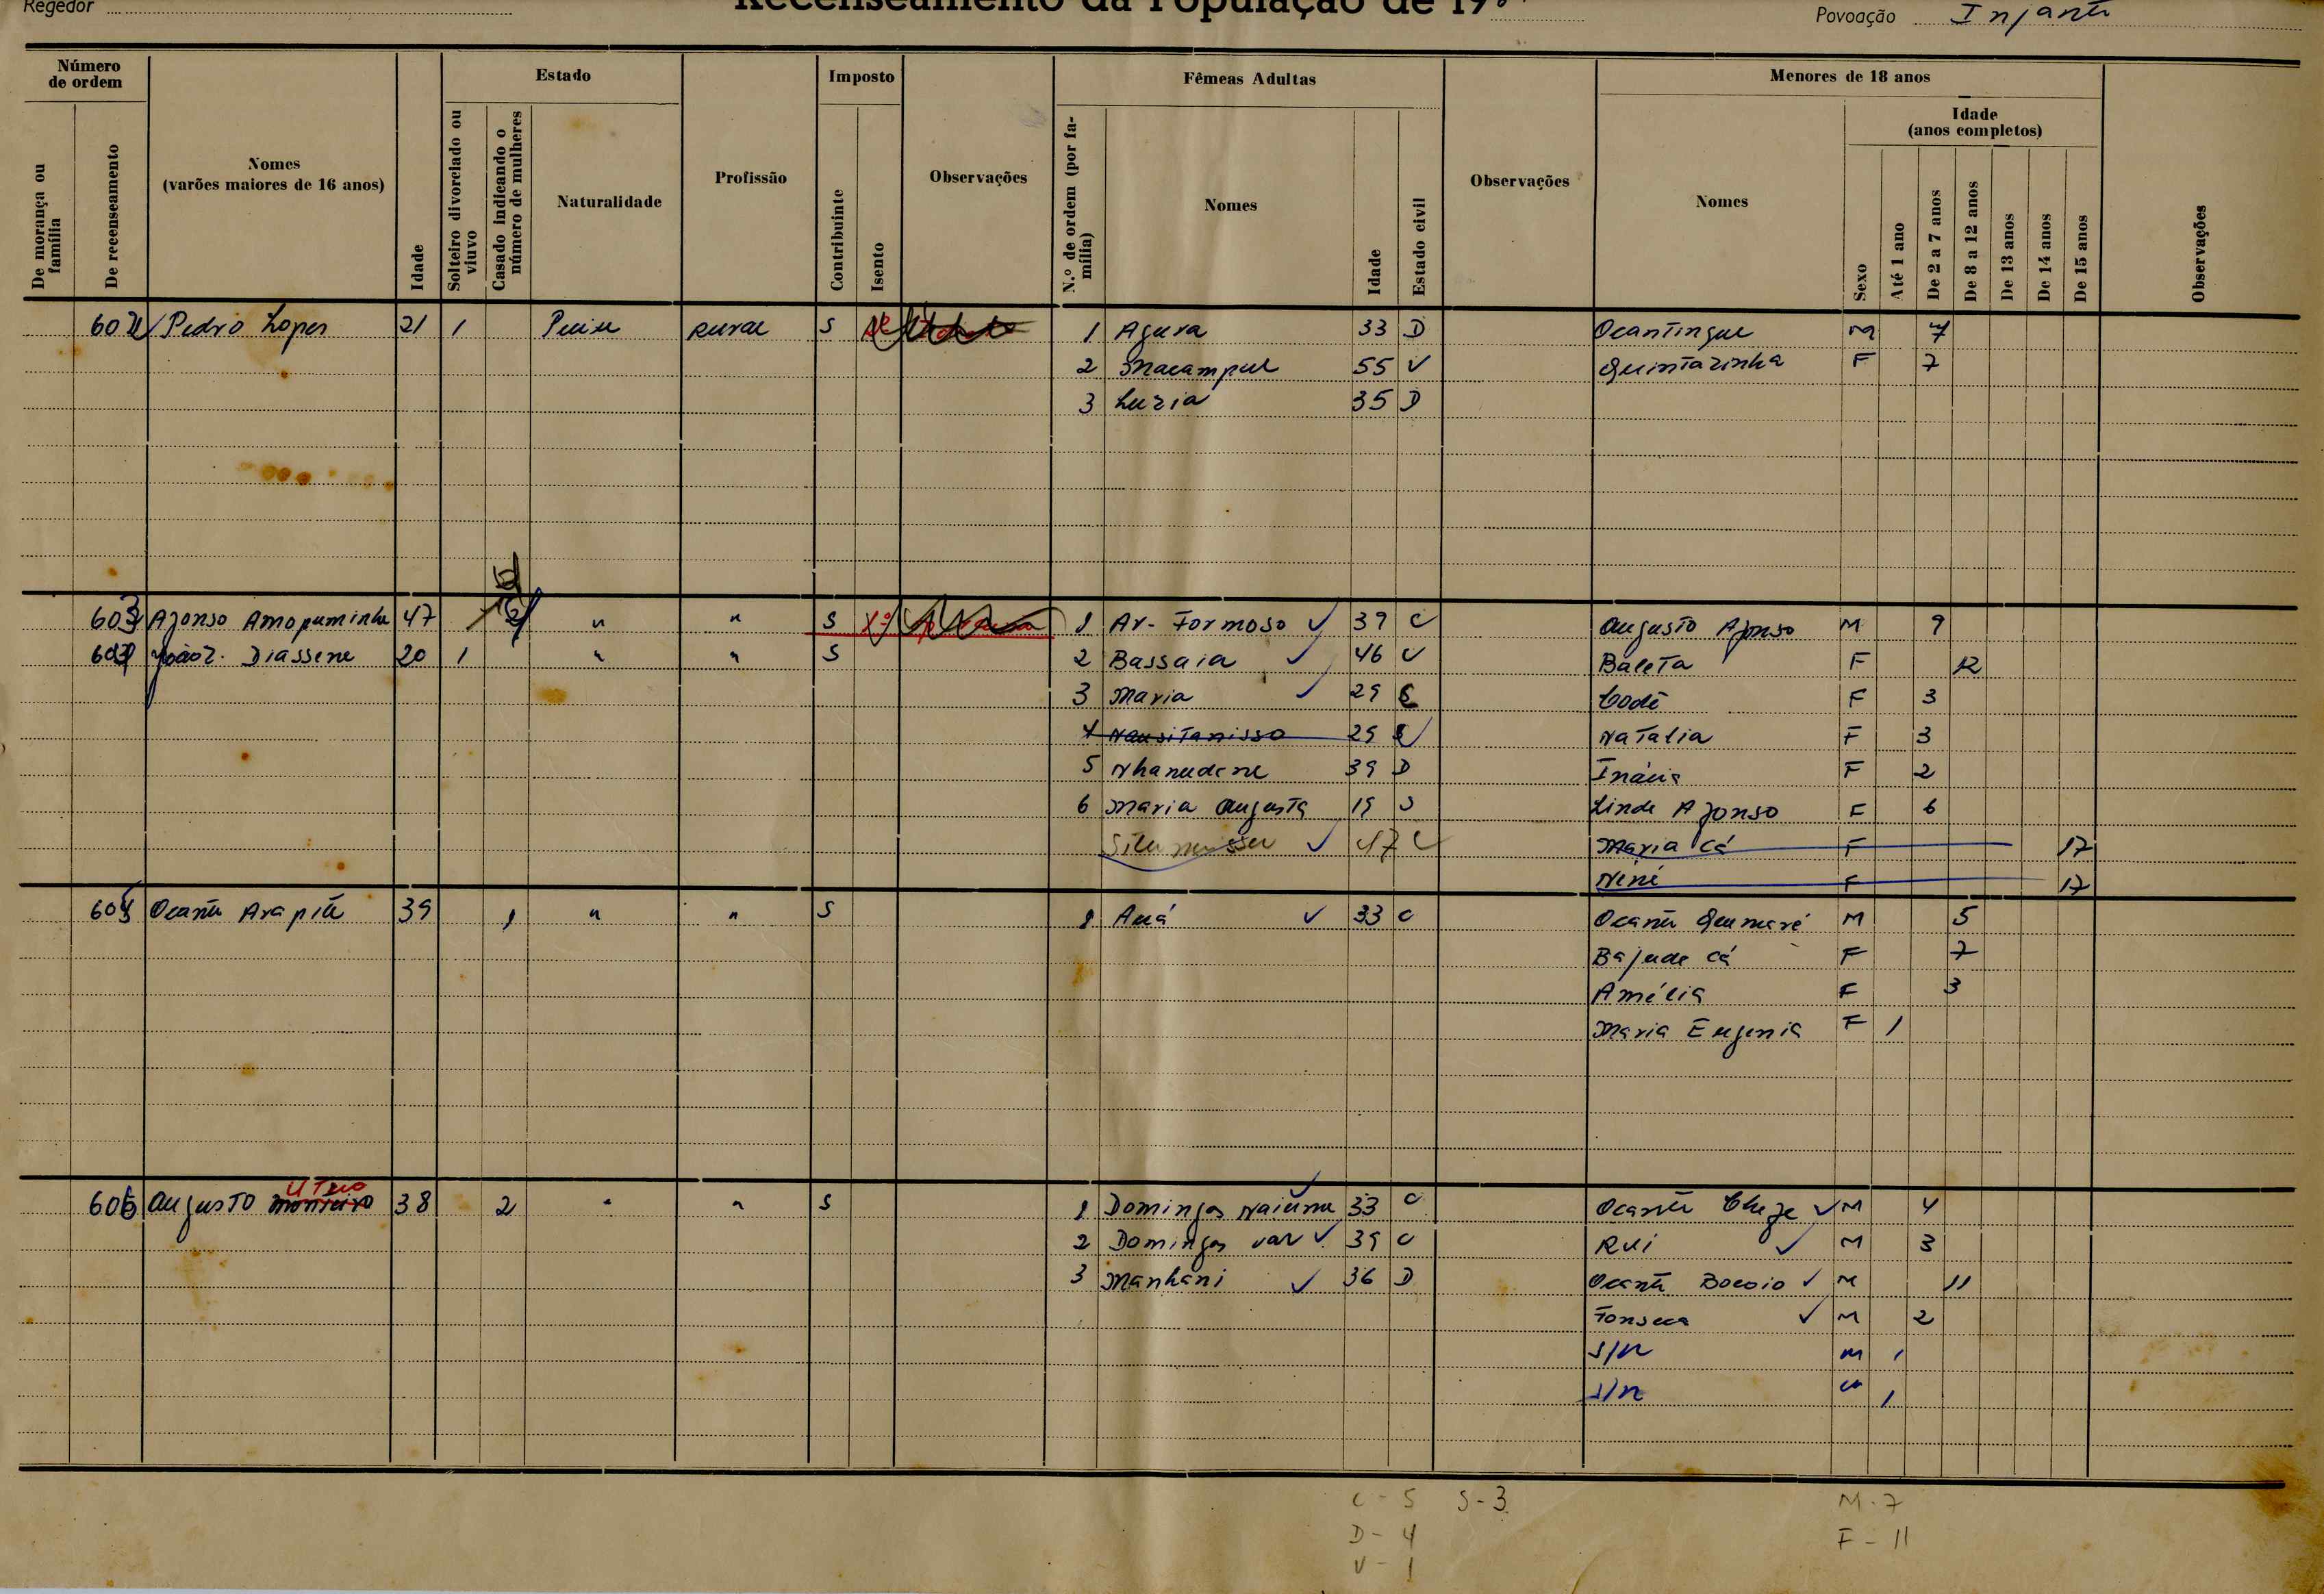 Regedor
Recenseamento da População de 19
Povoação
Número de ordem
De morança ou família
De recenseamento
Nomes
(varões maiores de 16 anos)
Idade
Estado
Solteiro divorciado ou viuvo
Casado indicando o número de mulheres
Naturalidade
Profissão
Imposto
Contribuinte
Isento
Observações
Fêmeas Adultas
N.º de ordem (por família)
Nomes
Idade
Estado civil
Observações
Menores de 18 anos
Nomes
Sexo
Idade
(anos completos)
Até 1 ano
De 2 a 7 anos
De 8 a 12 anos
De 13 anos
De 14 anos
De 15 anos
Observações
602 Pedro Lopes 21 1 rural S 1 Agura 33 D Ocantingue M 7
2 Macampul 55 V Quintazinha F 7
3 Luzia 35 D
603 Afonso Amopuminha 47 " " S 1 Ar- Formoso 39 C Augusto Afonso M 9
604 Diassene 20 1 " " S 2 Bassaia 46 C Baleta F 12
3 Maria 29 Codé F 3
4 Neusitanisso 29 Natalia F 3
5 Nhanudene 39 D Inácia F 2
6 Maria Augusta 19 S Linda Afonso F 6
47 C Maria Cá F 17
Nené F 17
605 39 1 " " S 1 Auá 33 C M 5
Bajude Cá F 7
Amélia F 3
Maria Eugenia F 1
606 Augusto Monteiro 38 2 " " S 1 Domingas 33 C M 4
2 Domingas Var 39 C Rui M 3
3 Manhani 36 D Bocoio M 11
Fonseca M 2
S/N M 1
S/N 1
C - 5 S - 3 M - 7
D - 4 F - 11
V - 1